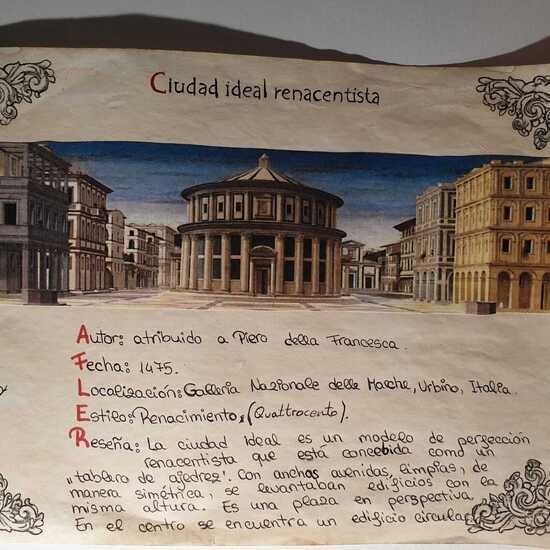 Ciudad ideal renacentista
Autor: atribuido a Piero della Francesca.
Fecha: 1475.
Localización: Galleria Nazionale delle Marche, Urbino, Italia.
Estilo: Renacimiento, (Quattrocento).
Reseña: La ciudad Ideal es un modelo de perfección
renacentista que está concebida como un
"tablero de ajedrez". Con anchas avenidas, limpias, de
manera simétrica, se levantaban edificios con la
misma altura. Es una plaza en perspectiva.
En el centro se encuentra un edificio circular